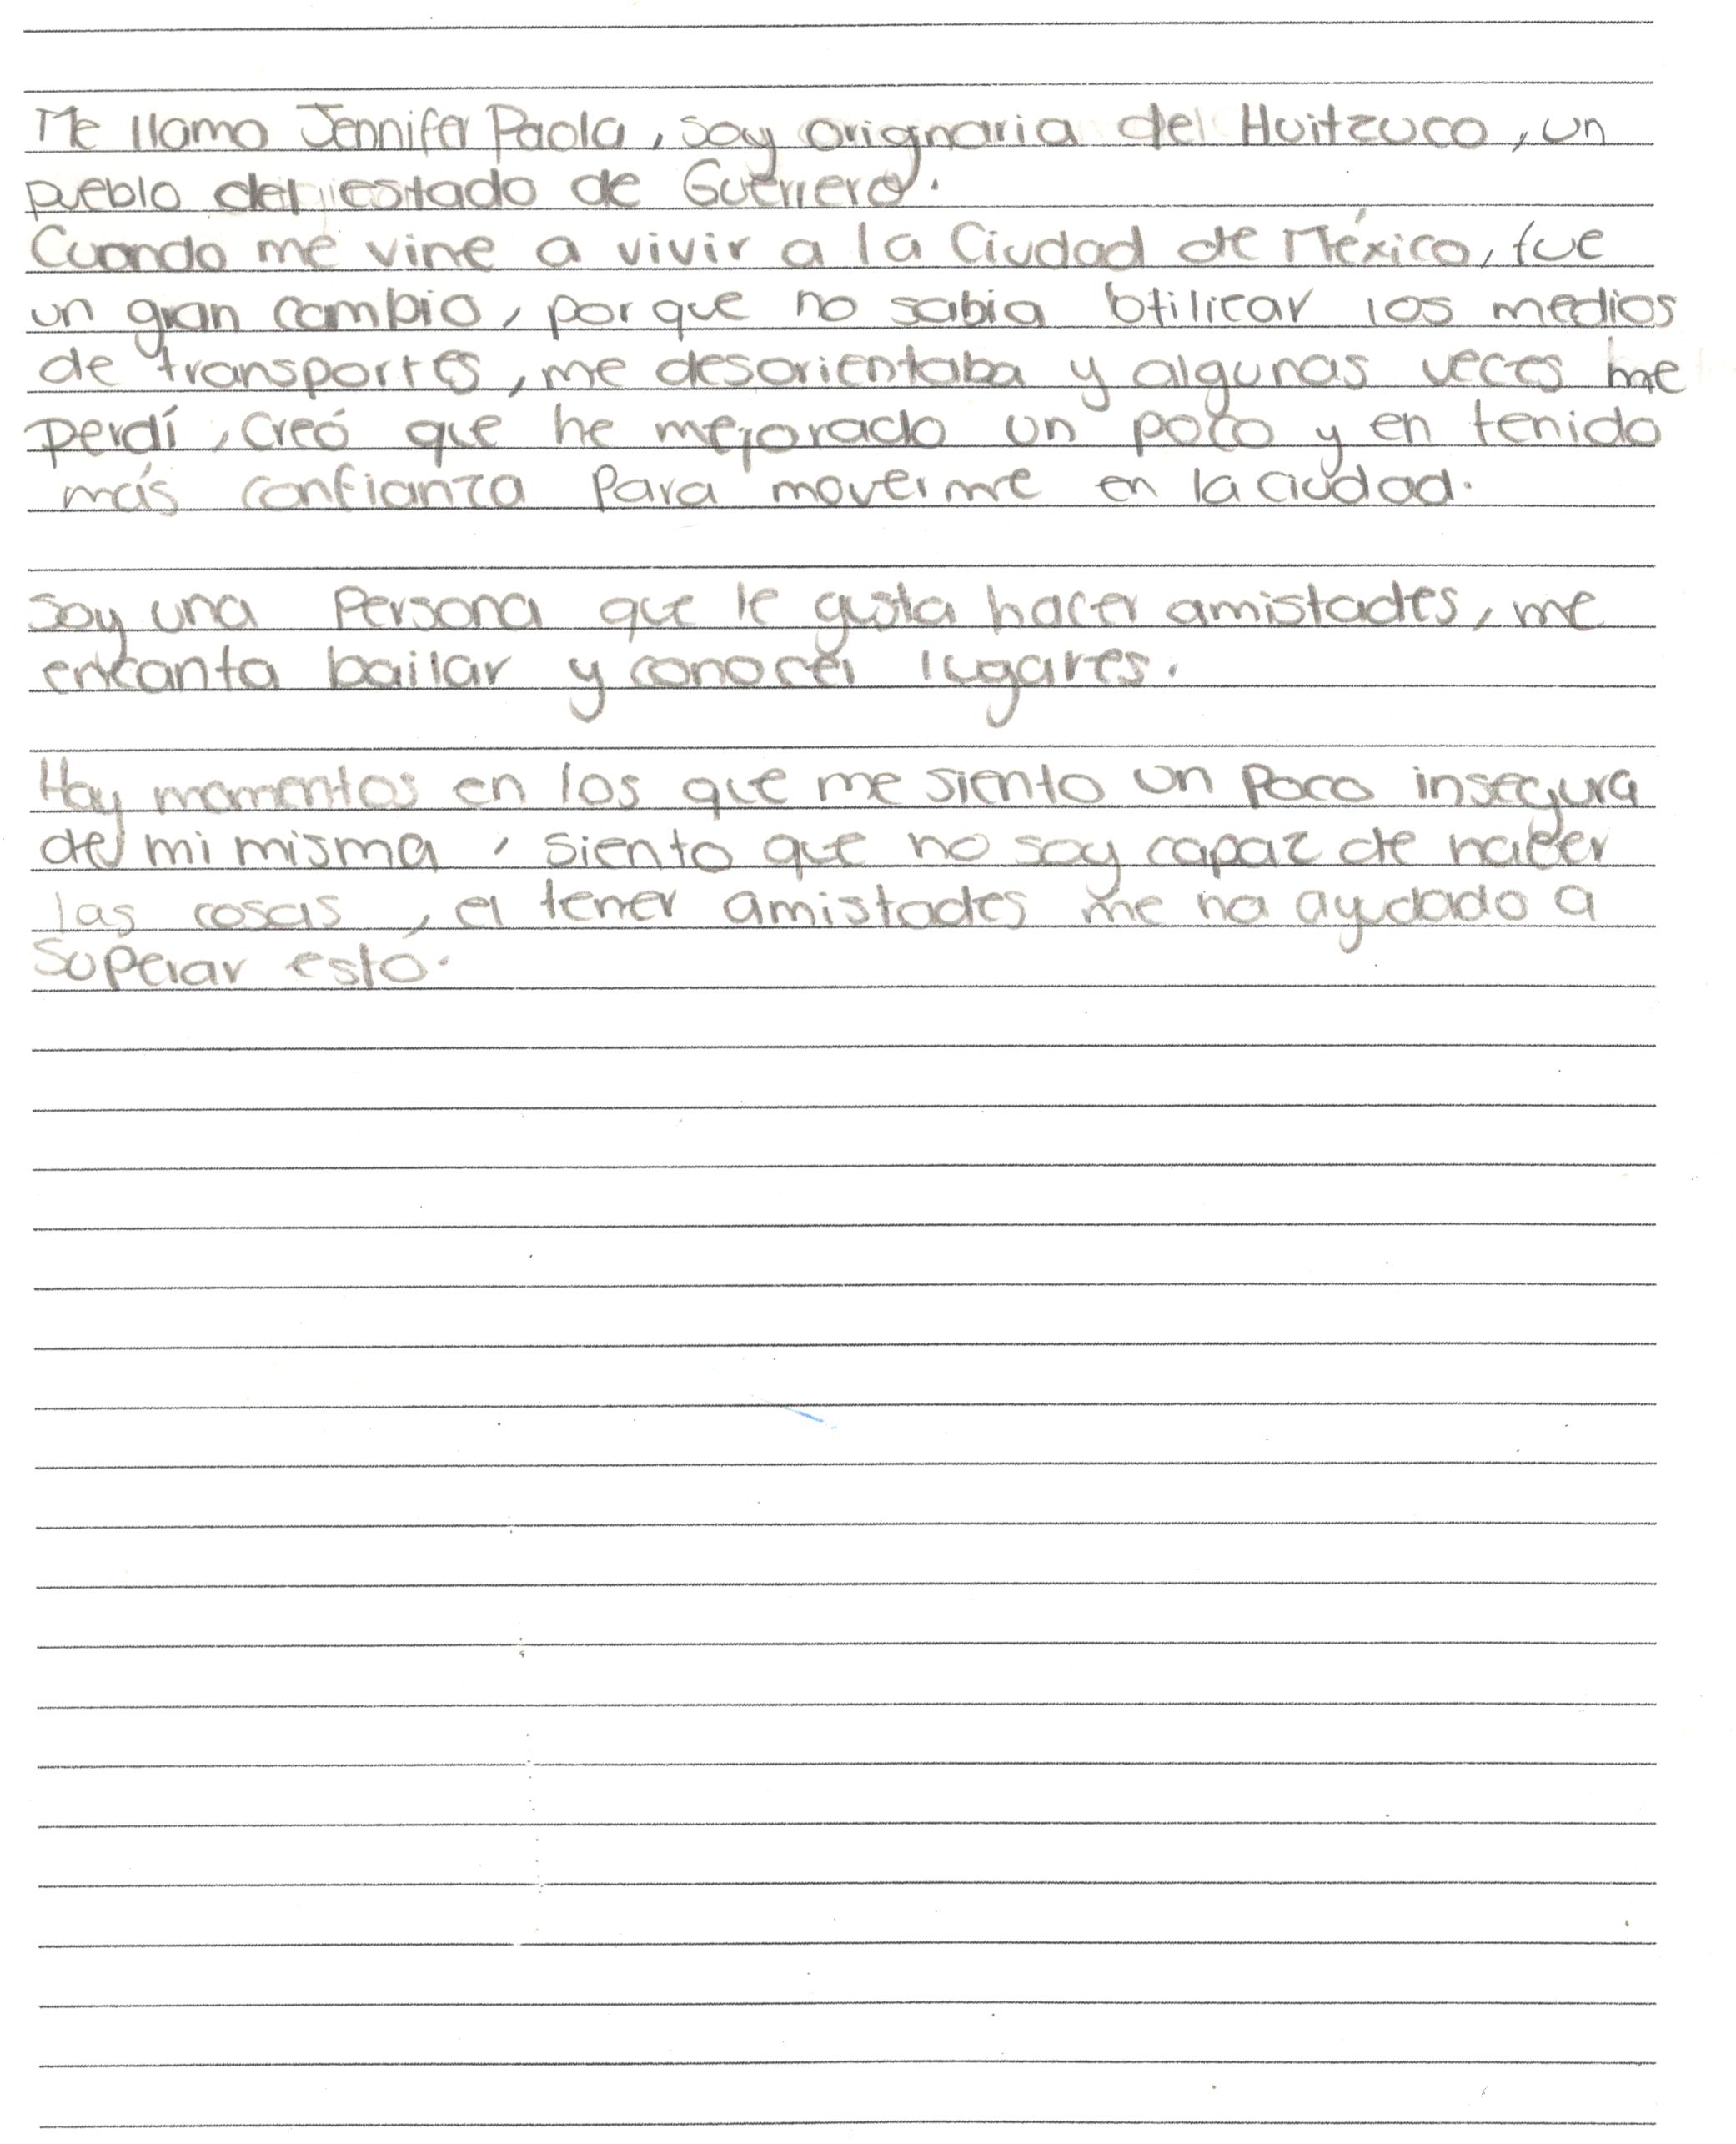 Me llamo Jennifer Paola, soy orignaria del Huitzuco, un
pueblo del estado de Guerrero.
Cuando me vine a vivir a la Ciudad de México, fue
un gran cambio, por que no sabia utilizar los medios
de transportes, me desorientaba y algunas veces me
perdí, creó que he mejorado un poco y en tenido
más confianza para moverme en la ciudad.
Soy una persona que le gusta hacer amistades, me
encanta bailar y conocer lugares.
Hay momentos en los que me siento un poco insegura
de mi misma, siento que no soy capaz de hacer
las cosas, el tener amistades me ha ayudado a
superar esto.